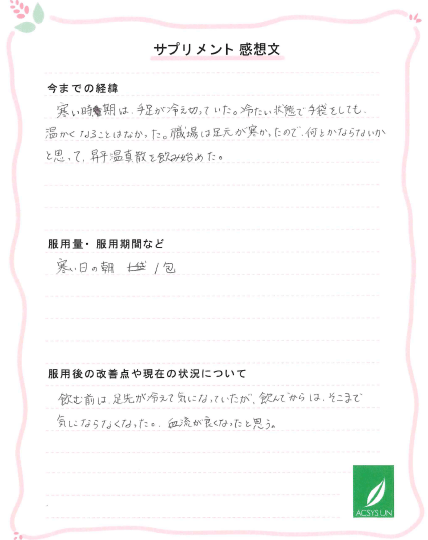 サプリメント 感想文
今までの経緯
寒い時期は、手足が冷え切っていた。冷たい状態で手袋をしても、
温かくなることはなかった。職場は足元が寒かったので、何とかならないか
と思って、昇平温真散を飲み始めた。
服用量・服用期間など
寒い日の朝 1包
服用後の改善点や現在の状況について
飲む前は、足先が冷えて気になっていたが、飲んでからは、そこまで
気にならなくなった。血流が良くなったと思う。
ACSYSUN